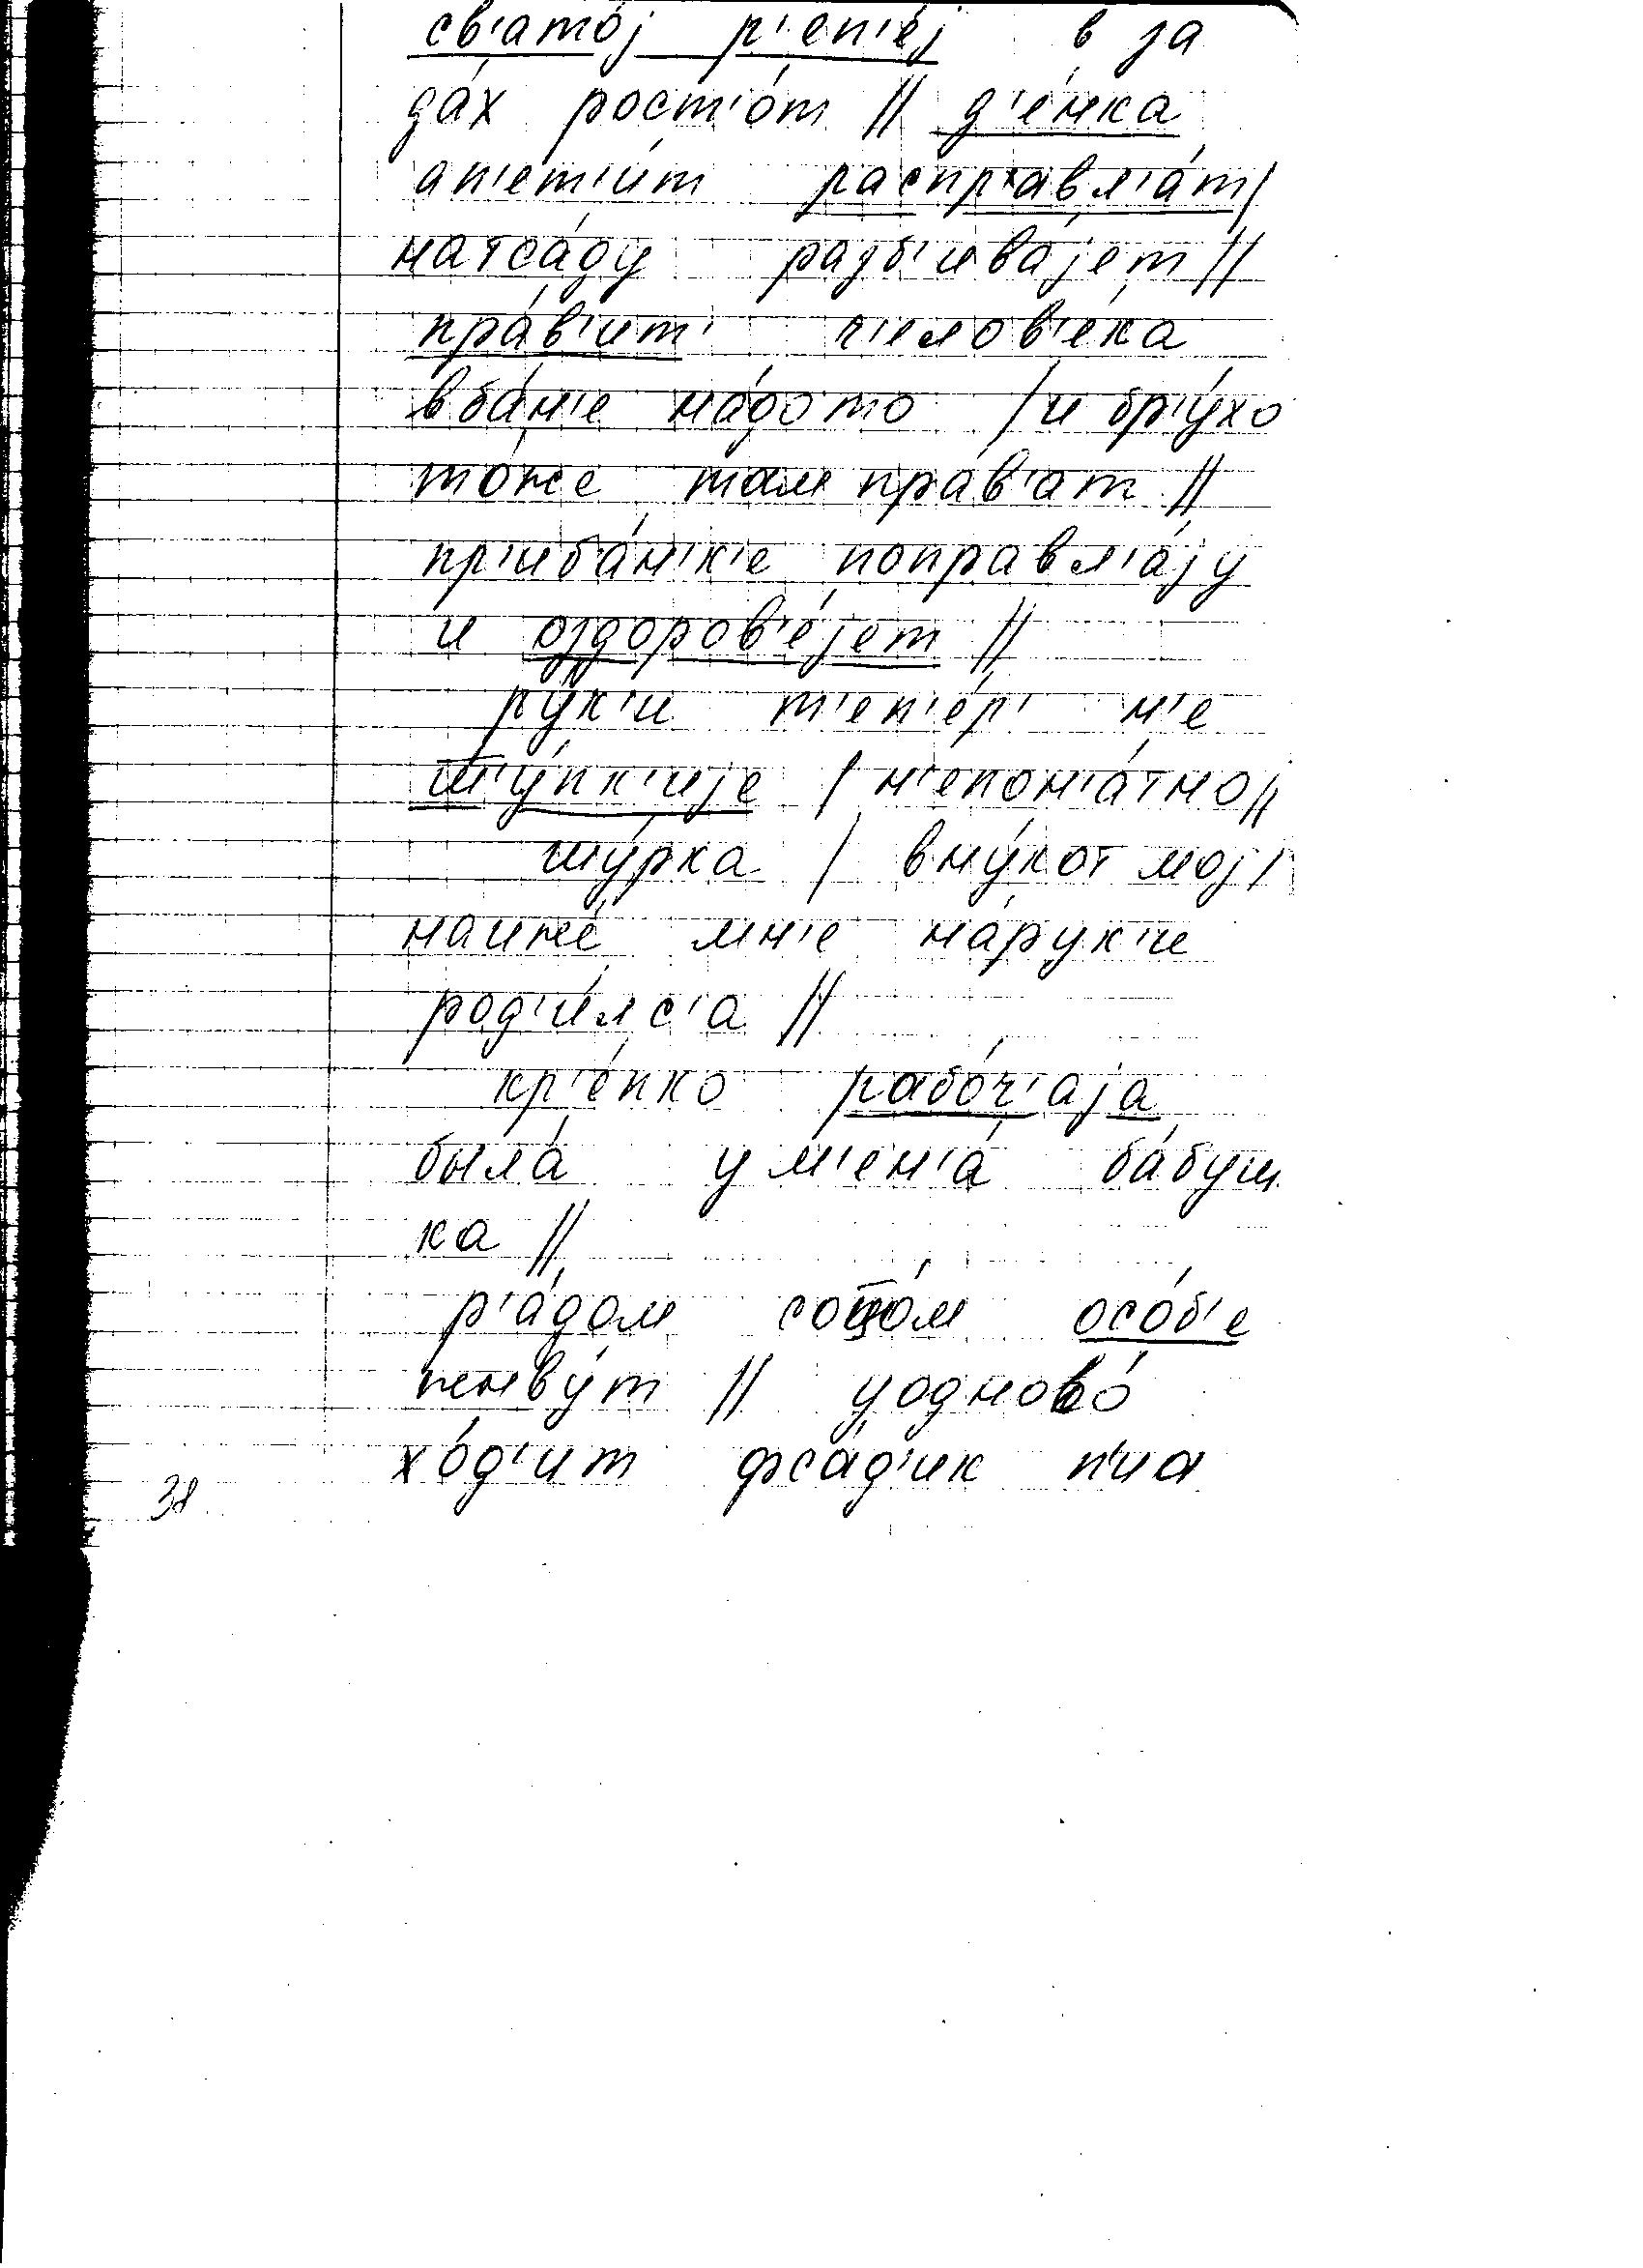 св'ато́j р'еп'е́j в за
да́х рост'о́т // д'е́нка
ап'ет'и́т расправл'а́т/
натса́ду разб'ива́jет //
пра́в'ит' ч'елов'е́ка
вба́н'е на́дото / и бр'у́хо
то́же там пра́в'ат //
пр'иба́н'к'е поправл'а́jу
и оздоров'е́jет //
ру́к'и т'еп'е́р' н'е
ш'у́пк'иjе / н'епон'а́тно //
шу́рка / вну́кот моj /
наиже́ мн'е на́рук'и
род'и́лс'а //
кр'е́пко рабо́ч'аjа
была́ ум'ен'а́ ба́буш
ка //
р'а́дом сотцо́м осо́б'е
живу́т // уодново́
хо́д'ит фса́д'ик п'иа
38